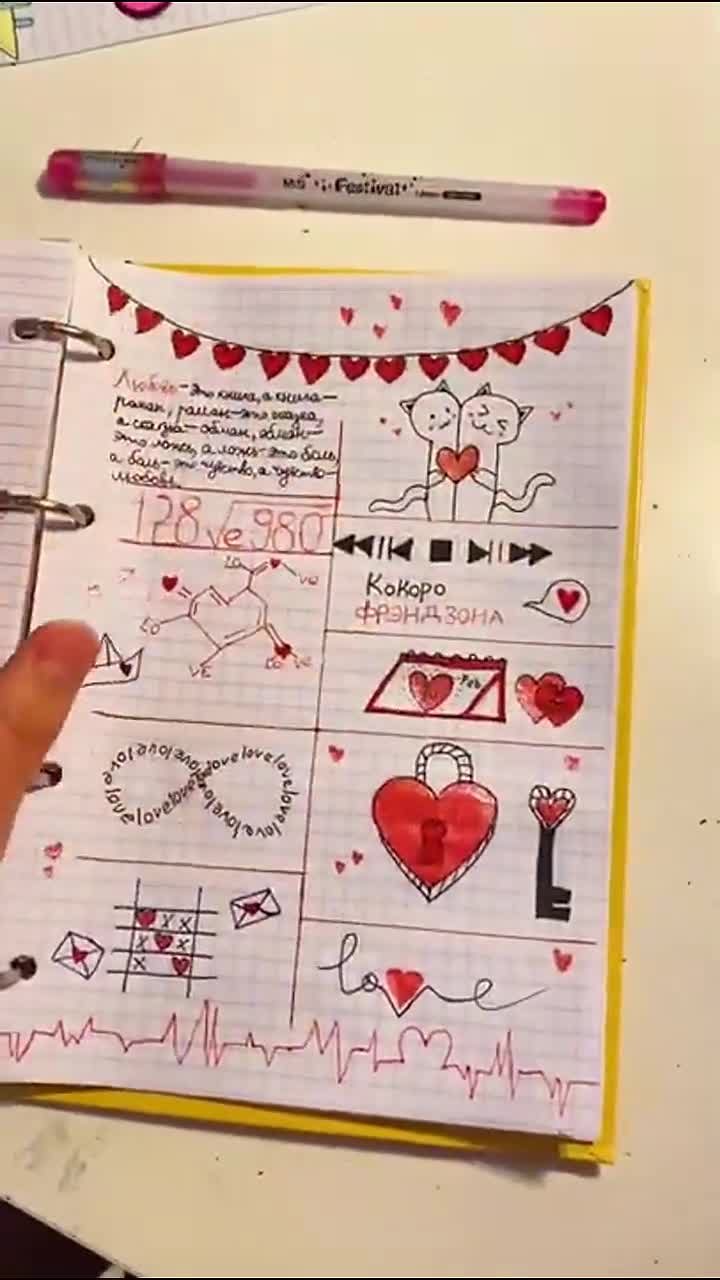 Festival
Любовь - это книга, а книга -
роман, роман - это сказка,
а сказка - обман, обман -
это ложь, а ложь - это боль,
а боль - это чувство, а чувство -
любовь.
128√e980
Кокоро
ФРЭНДЗОНА
LO
VE
LO
VE
LO VE
Feb
lovelovelovelovelovelovelovelovelove
X X
X X
X
love